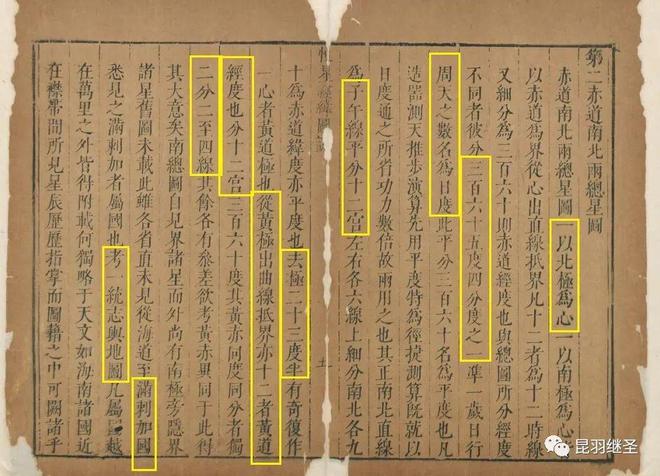 第二赤道南北兩總星圖
赤道南北兩總星圖一以北極為心一以南極為心
以赤道為界從心出直線抵界凡十二者為十二時線
又細分為三百六十則赤道經度也與總圖所分經度
不同者彼分三百六十五度四分度之一準一歲日行
周天之數名為日度此平分三百六十名為平度也凡
造器測天推步演算先用平度特為徑捷測算既就以
日度通之所省功力數倍故兩用之也其正南北直線
為子午線平分十二宮左右各六線上細分南北各九
十為赤道緯度亦平度也去極二十三度半有奇復作
一心者黃道極也從黃極出曲線抵界亦十二者黃道
經度也分十二宮三百六十度其黃赤同度同分者獨
二分二至四線其餘各有叅差欲考黃赤異同于此得
其大意矣南總圖自見界諸星而外尚有南極旁隱界
諸星舊圖未載此雖各省直未見從海道至滿剌加國
悉見之滿剌加者屬國也考一統志輿地圖凡屬國越
在萬里之外皆得附載何獨略于天文如海南諸國近
在襟帶間所見星辰歷歷指掌而圖籍之中可闕諸乎
昆羽继圣